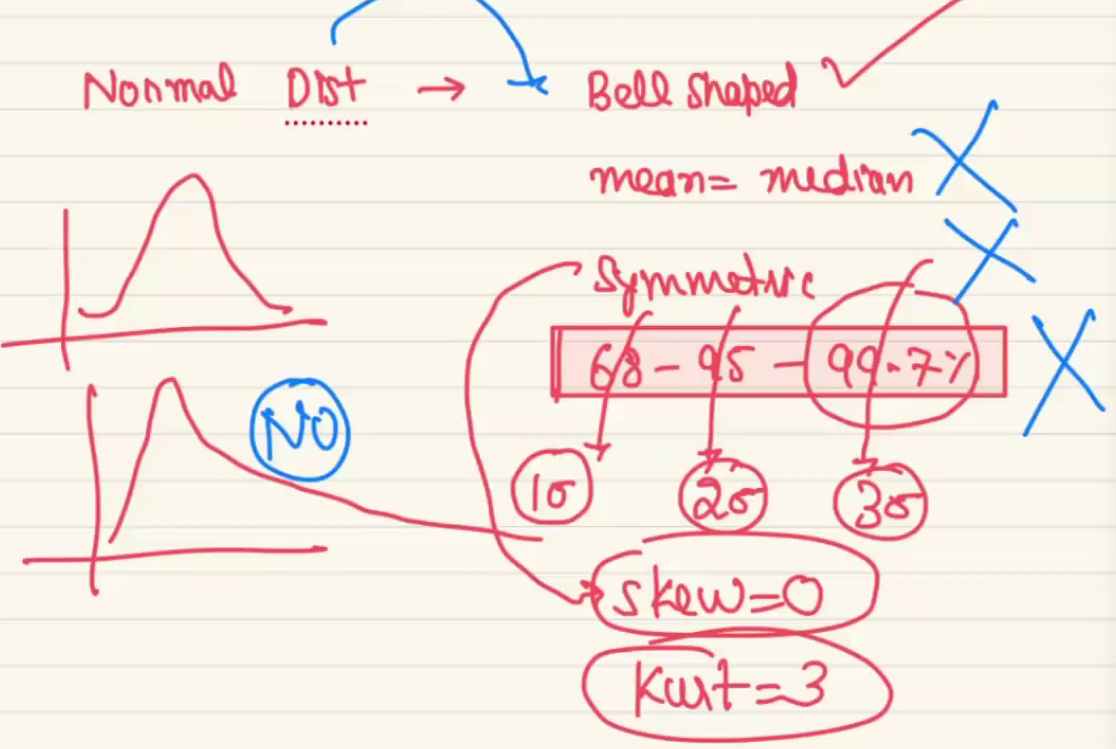 Normal Dist → Bell shaped
mean = median
Symmetric
68 - 95 - 99.7%
NO
1σ 2σ 3σ
skew = 0
Kurt = 3